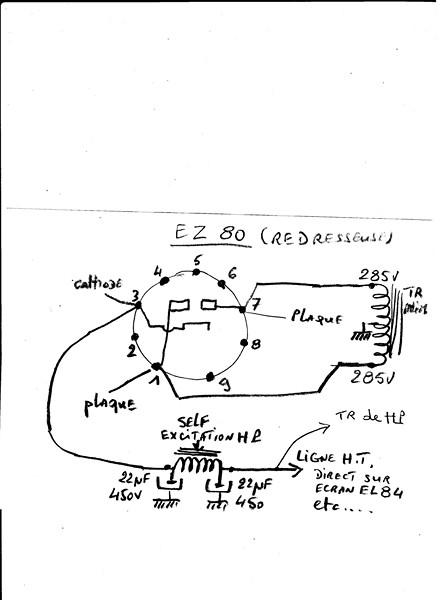 EZ 80 (REDRESSEUSE)
5
4
6
3
7
2
8
1
9
cathode
PLAQUE
plaque
285V
TR
285V
SELF
EXCITATION HP
TR de HP
22µF
450V
22µF
450
LIGNE H.T.
DIRECT SUR
ECRAN EL84
etc....